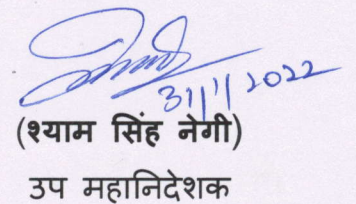 31/1/2022
(श्याम सिंह नेगी)
उप महानिदेशक